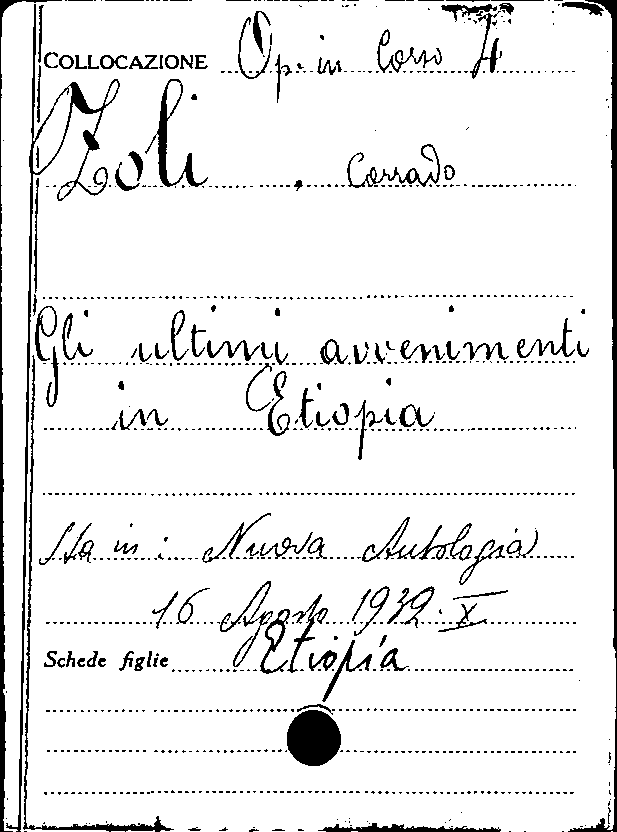 COLLOCAZIONE Op. in Corso 4
Zoli, Corrado
Gli ultimi avvenimenti
in Etiopia
Sta in: Nuova Antologia
16 Agosto 1932. X
Schede figlie Etiopia